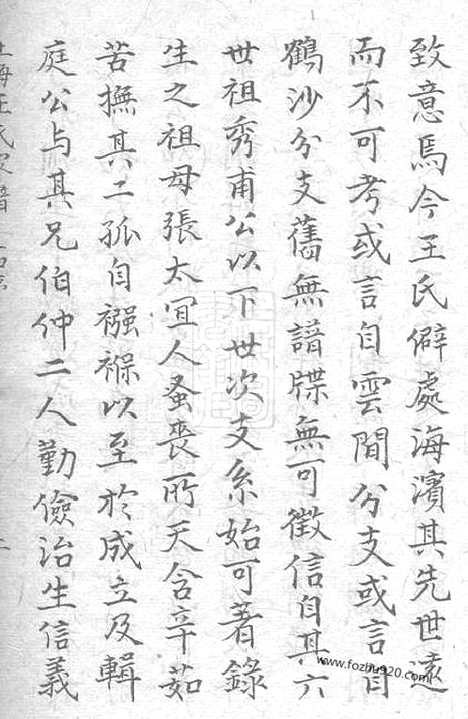 致意焉今王氏僻處海濱其先世遠
而不可考或言自雲間分支或言自
鶴沙分支舊無譜牒無可徵信自其六
世祖秀甫公以下世次支系始可著錄
生之祖母張太宜人蚤喪所天含辛茹
苦撫其二孤自襁褓以至於成立及輯
庭公与其兄伯仲二人勤儉治生信義
www.fozhu920.com